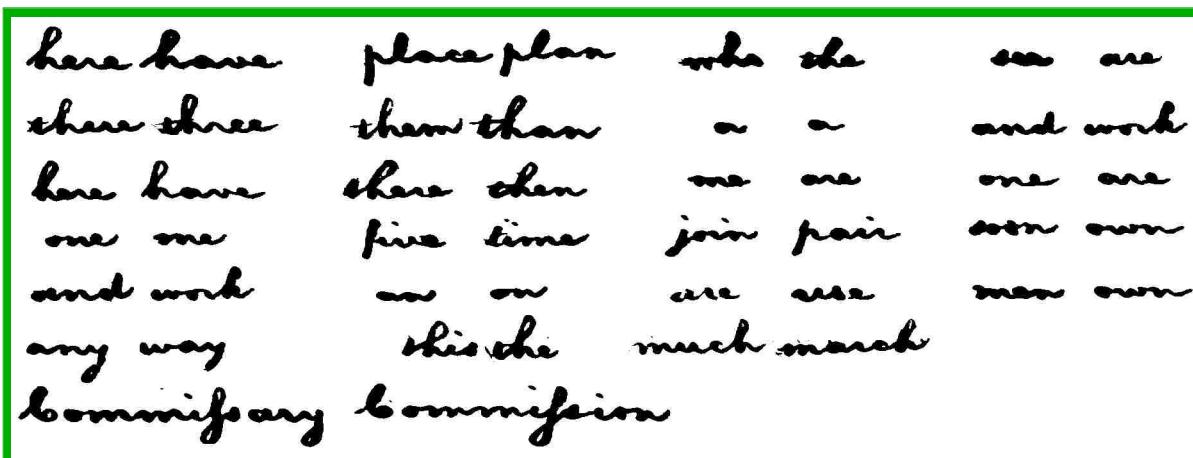 here have place plan who the see are
there three them than a a and work
here have there then one are one are
one one five time join pair soon own
and work an on are use men own
any way this the much march
Commiſsary Commiſsion